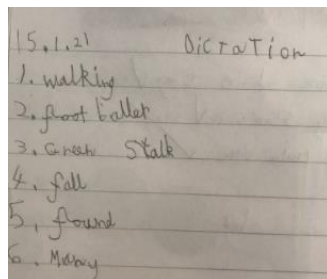 15.1.21 Dictation
1. walking
2. floot baller
3. Green Stalk
4. fall
5, flound
6. Many